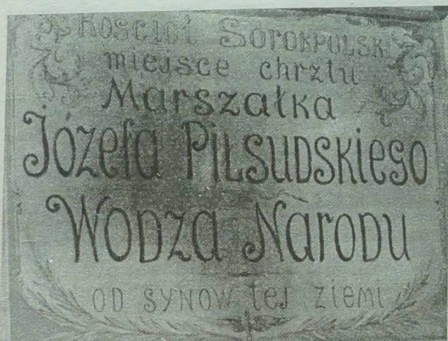 Kościół Sorokpolski
miejsce chrztu
Marszałka
Józefa Piłsudskiego
Wodza Narodu
OD SYNÓW tej ziemi